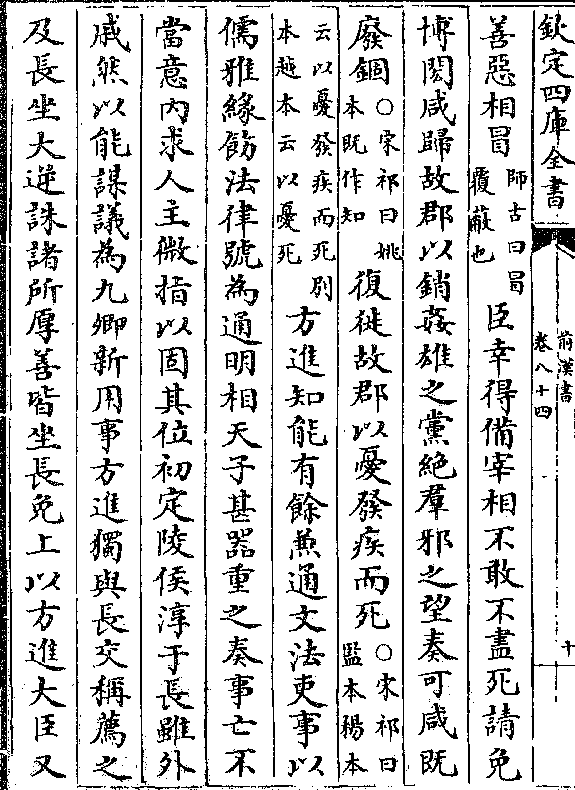 欽定四庫全書
前漢書
卷八十四
十
善惡相冒師古曰冒覆蔽也臣幸得備宰相不敢不盡死請免
博閎咸歸故郡以銷姦雄之黨絶羣邪之望奏可咸既
廢錮○宋祁曰姚本既作知復徙故郡以憂發疾而死○宋祁曰監本楊本
云以憂發疾而死别本越本云以憂死方進知能有餘兼通文法吏事以
儒雅緣飭法律號為通明相天子甚器重之奏事亡不
當意内求人主微指以固其位初定陵侯淳于長雖外
戚然以能謀議為九卿新用事方進獨與長交稱薦之
及長坐大逆誅諸所厚善皆坐長免上以方進大臣又